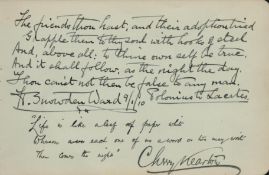 The friends thou hast, and their adoption tried
Grapple them to thy soul with hooks of steel
And, above all: to thine own self be true,
And it shall follow, as the night the day,
Thou canst not then be false to any man.
H. Snowden Ward 9/1/10 Polonius to Laertes.
"Life is like a leaf of paper white
Whereon each one of us a word or two may write
Then comes the night"
Cherry Kearton